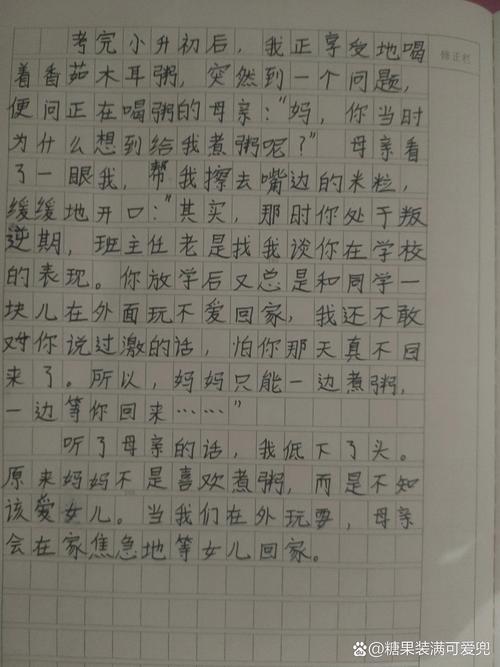 考完小升初后，我正享受地喝
着番茹木耳粥，突然到一个问题，
便问正在喝粥的母亲："妈，你当时
为什么想到给我煮粥呢？"母亲看
了一眼我，帮我擦去嘴边的米粒，
缓缓地开口："其实，那时你处于叛
逆期，班主任老是找我谈你在学校
的表现。你放学后又总是和同学一
块儿在外面玩不爱回家，我还不敢
对你说过激的话，怕你那天真不回
来了。所以，妈妈只能一边煮粥，
一边等你回来……"
听了母亲的话，我低下了头。
原来妈妈不是喜欢煮粥，而是不知
该爱女儿。当我们在外玩耍，母亲
会在家焦急地等女儿回家。
修正栏
@糖果装满可爱兜